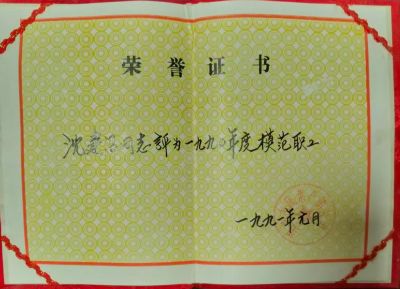 荣誉证书
沈爱 同志評为一九九〇年度模范职工
一九九一年元月